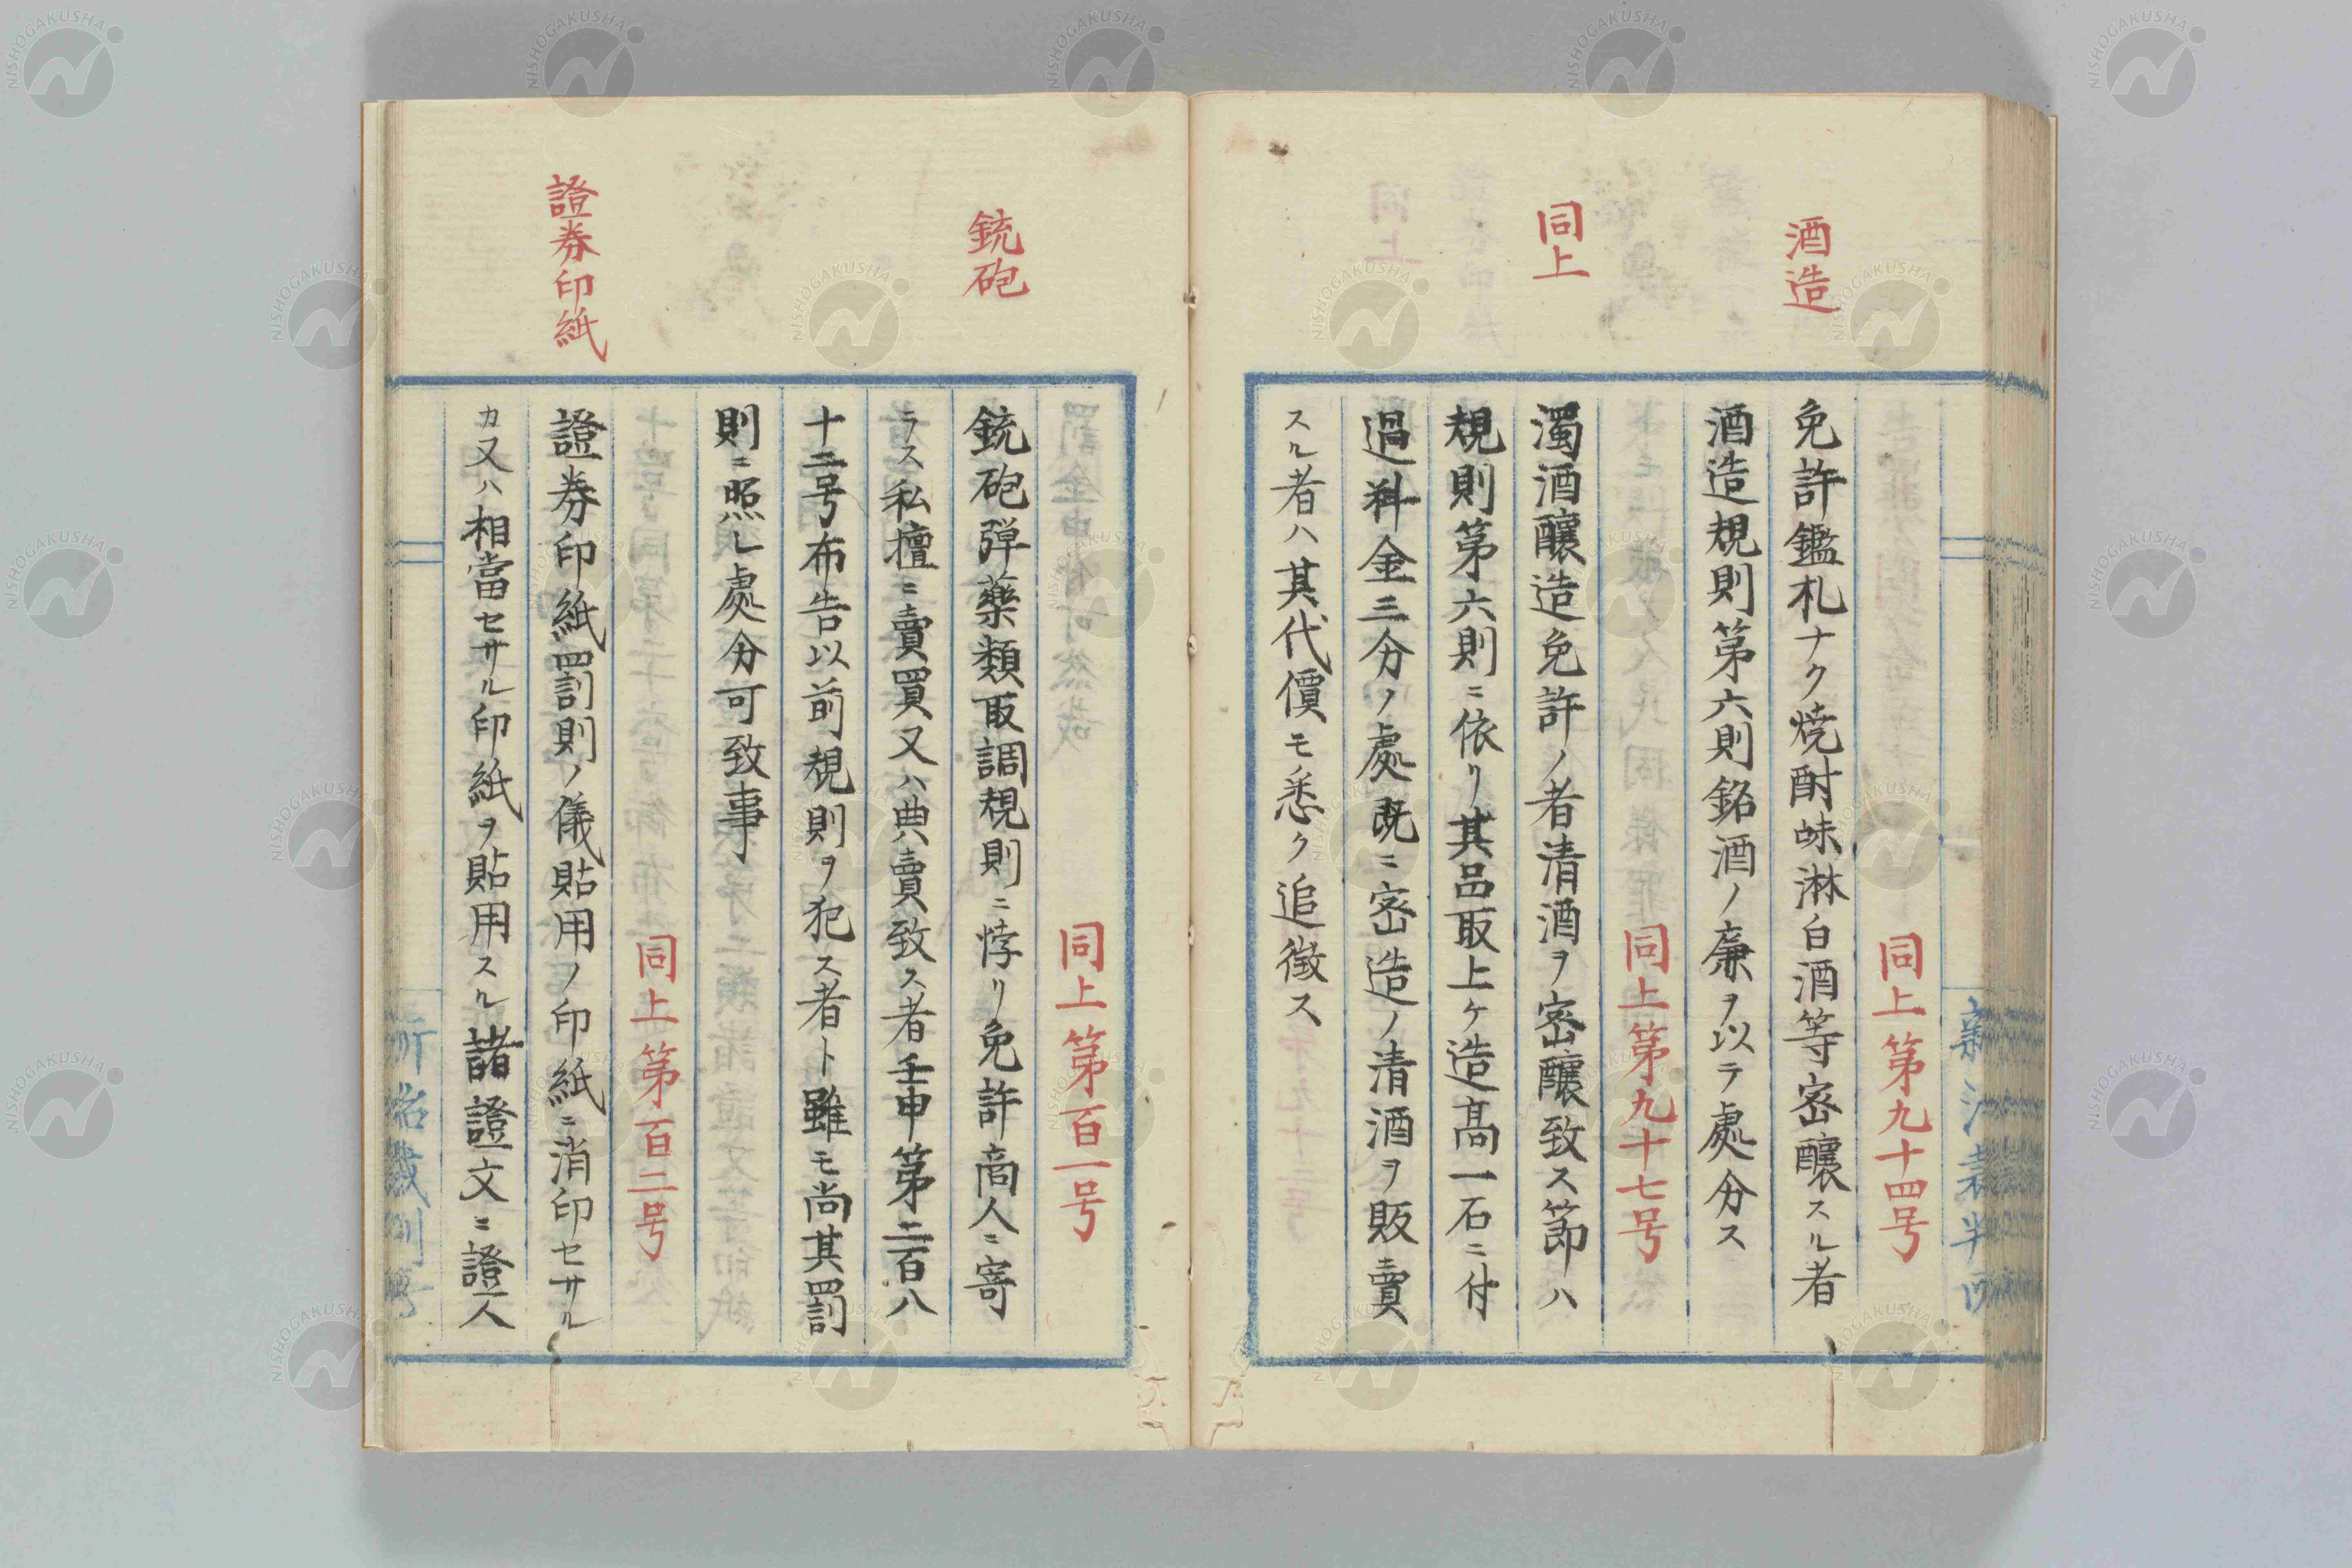 酒造
同上
同上第九十四号
免許鑑札ナク焼酎味淋白酒等密釀スル者
酒造規則第六則銘酒ノ廉ヲ以テ處分ス
同上第九十七号
濁酒釀造免許ノ者清酒ヲ密釀致ス節ハ
規則第六則ニ依リ其品取上ケ造高一石ニ付
過料金三分ノ處既ニ密造ノ清酒ヲ販賣
スル者ハ其代價モ悉ク追徴ス
銃砲
證券印紙
同上第百一号
銃砲弾藥類取調規則ニ悖リ免許商人ニ寄
ラス私擅ニ賣買又ハ典賣致ス者壬申第二百八
十二号布告以前規則ヲ犯ス者ト雖モ尚其罰
則ニ照シ處分可致事
同上第百二号
證券印紙罰則ノ儀貼用ノ印紙ニ消印セサル
カ又ハ相當セサル印紙ヲ貼用スル諸證文ニ證人
NISHOGAKUSHA